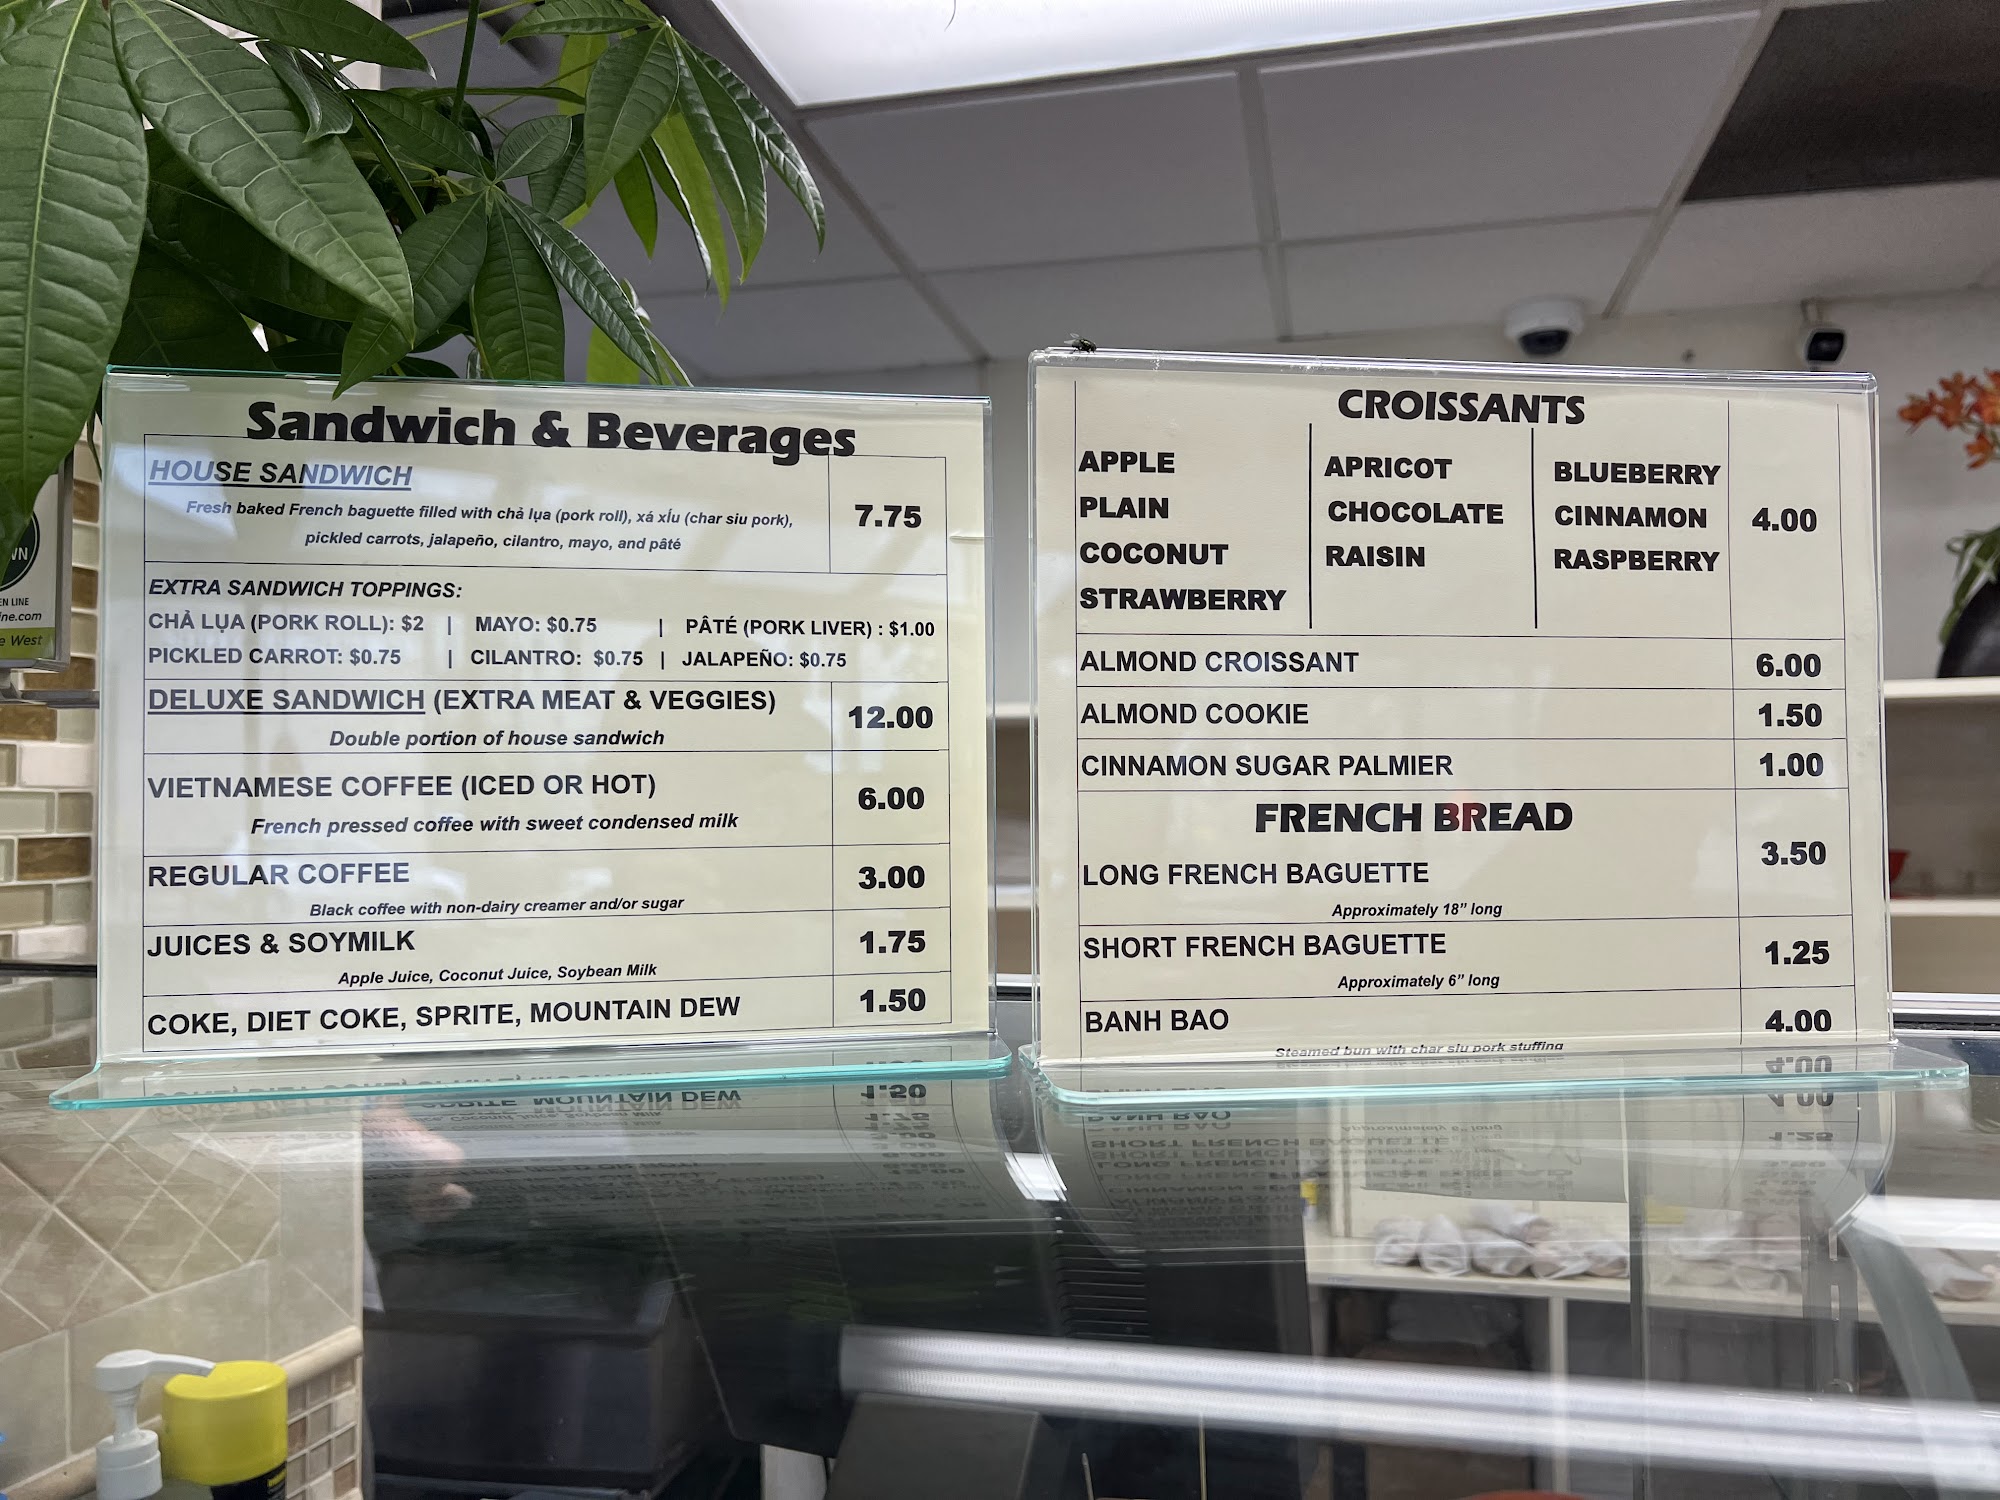 Sandwich & Beverages
HOUSE SANDWICH
Fresh baked French baguette filled with chả lụa (pork roll), xá xíu (char siu pork),
pickled carrots, jalapeño, cilantro, mayo, and pâté
7.75
EXTRA SANDWICH TOPPINGS:
CHẢ LỤA (PORK ROLL): $2 | MAYO: $0.75 | PÂTÉ (PORK LIVER) : $1.00
PICKLED CARROT: $0.75 | CILANTRO: $0.75 | JALAPEÑO: $0.75
DELUXE SANDWICH (EXTRA MEAT & VEGGIES)
Double portion of house sandwich
12.00
VIETNAMESE COFFEE (ICED OR HOT)
French pressed coffee with sweet condensed milk
6.00
REGULAR COFFEE
Black coffee with non-dairy creamer and/or sugar
3.00
JUICES & SOYMILK
Apple Juice, Coconut Juice, Soybean Milk
1.75
COKE, DIET COKE, SPRITE, MOUNTAIN DEW
1.50
CROISSANTS
APPLE
PLAIN
COCONUT
STRAWBERRY
APRICOT
CHOCOLATE
RAISIN
BLUEBERRY
CINNAMON
RASPBERRY
4.00
ALMOND CROISSANT 6.00
ALMOND COOKIE 1.50
CINNAMON SUGAR PALMIER 1.00
FRENCH BREAD
LONG FRENCH BAGUETTE
Approximately 18” long
3.50
SHORT FRENCH BAGUETTE
Approximately 6” long
1.25
BANH BAO
Steamed bun with char siu pork stuffing
4.00
West